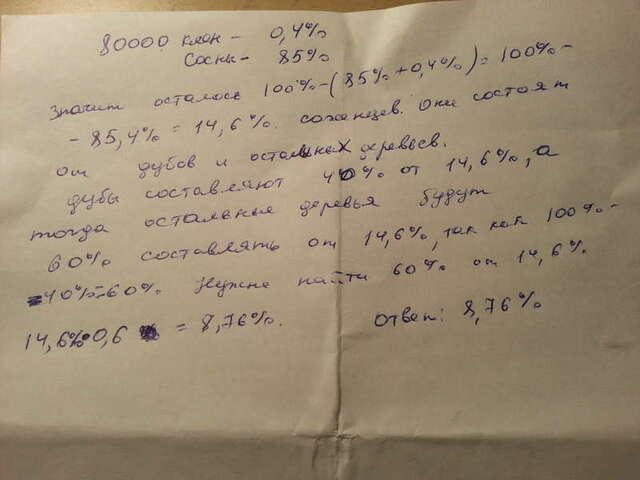 80000 клён - 0,4%
Сосны - 85%
Значит осталось 100%-(85%+0,4%)=100%-
- 85,4% = 14,6% саженцев. Они состоят
от дубов и остальных деревьев.
Дубы составляют 40% от 14,6%, а
тогда остальные деревья будут
60% составлять от 14,6%, так как 100%-
-40%=60%. Нужно найти 60% от 14,6%
14,6%·0,6 = 8,76%. Ответ: 8,76%